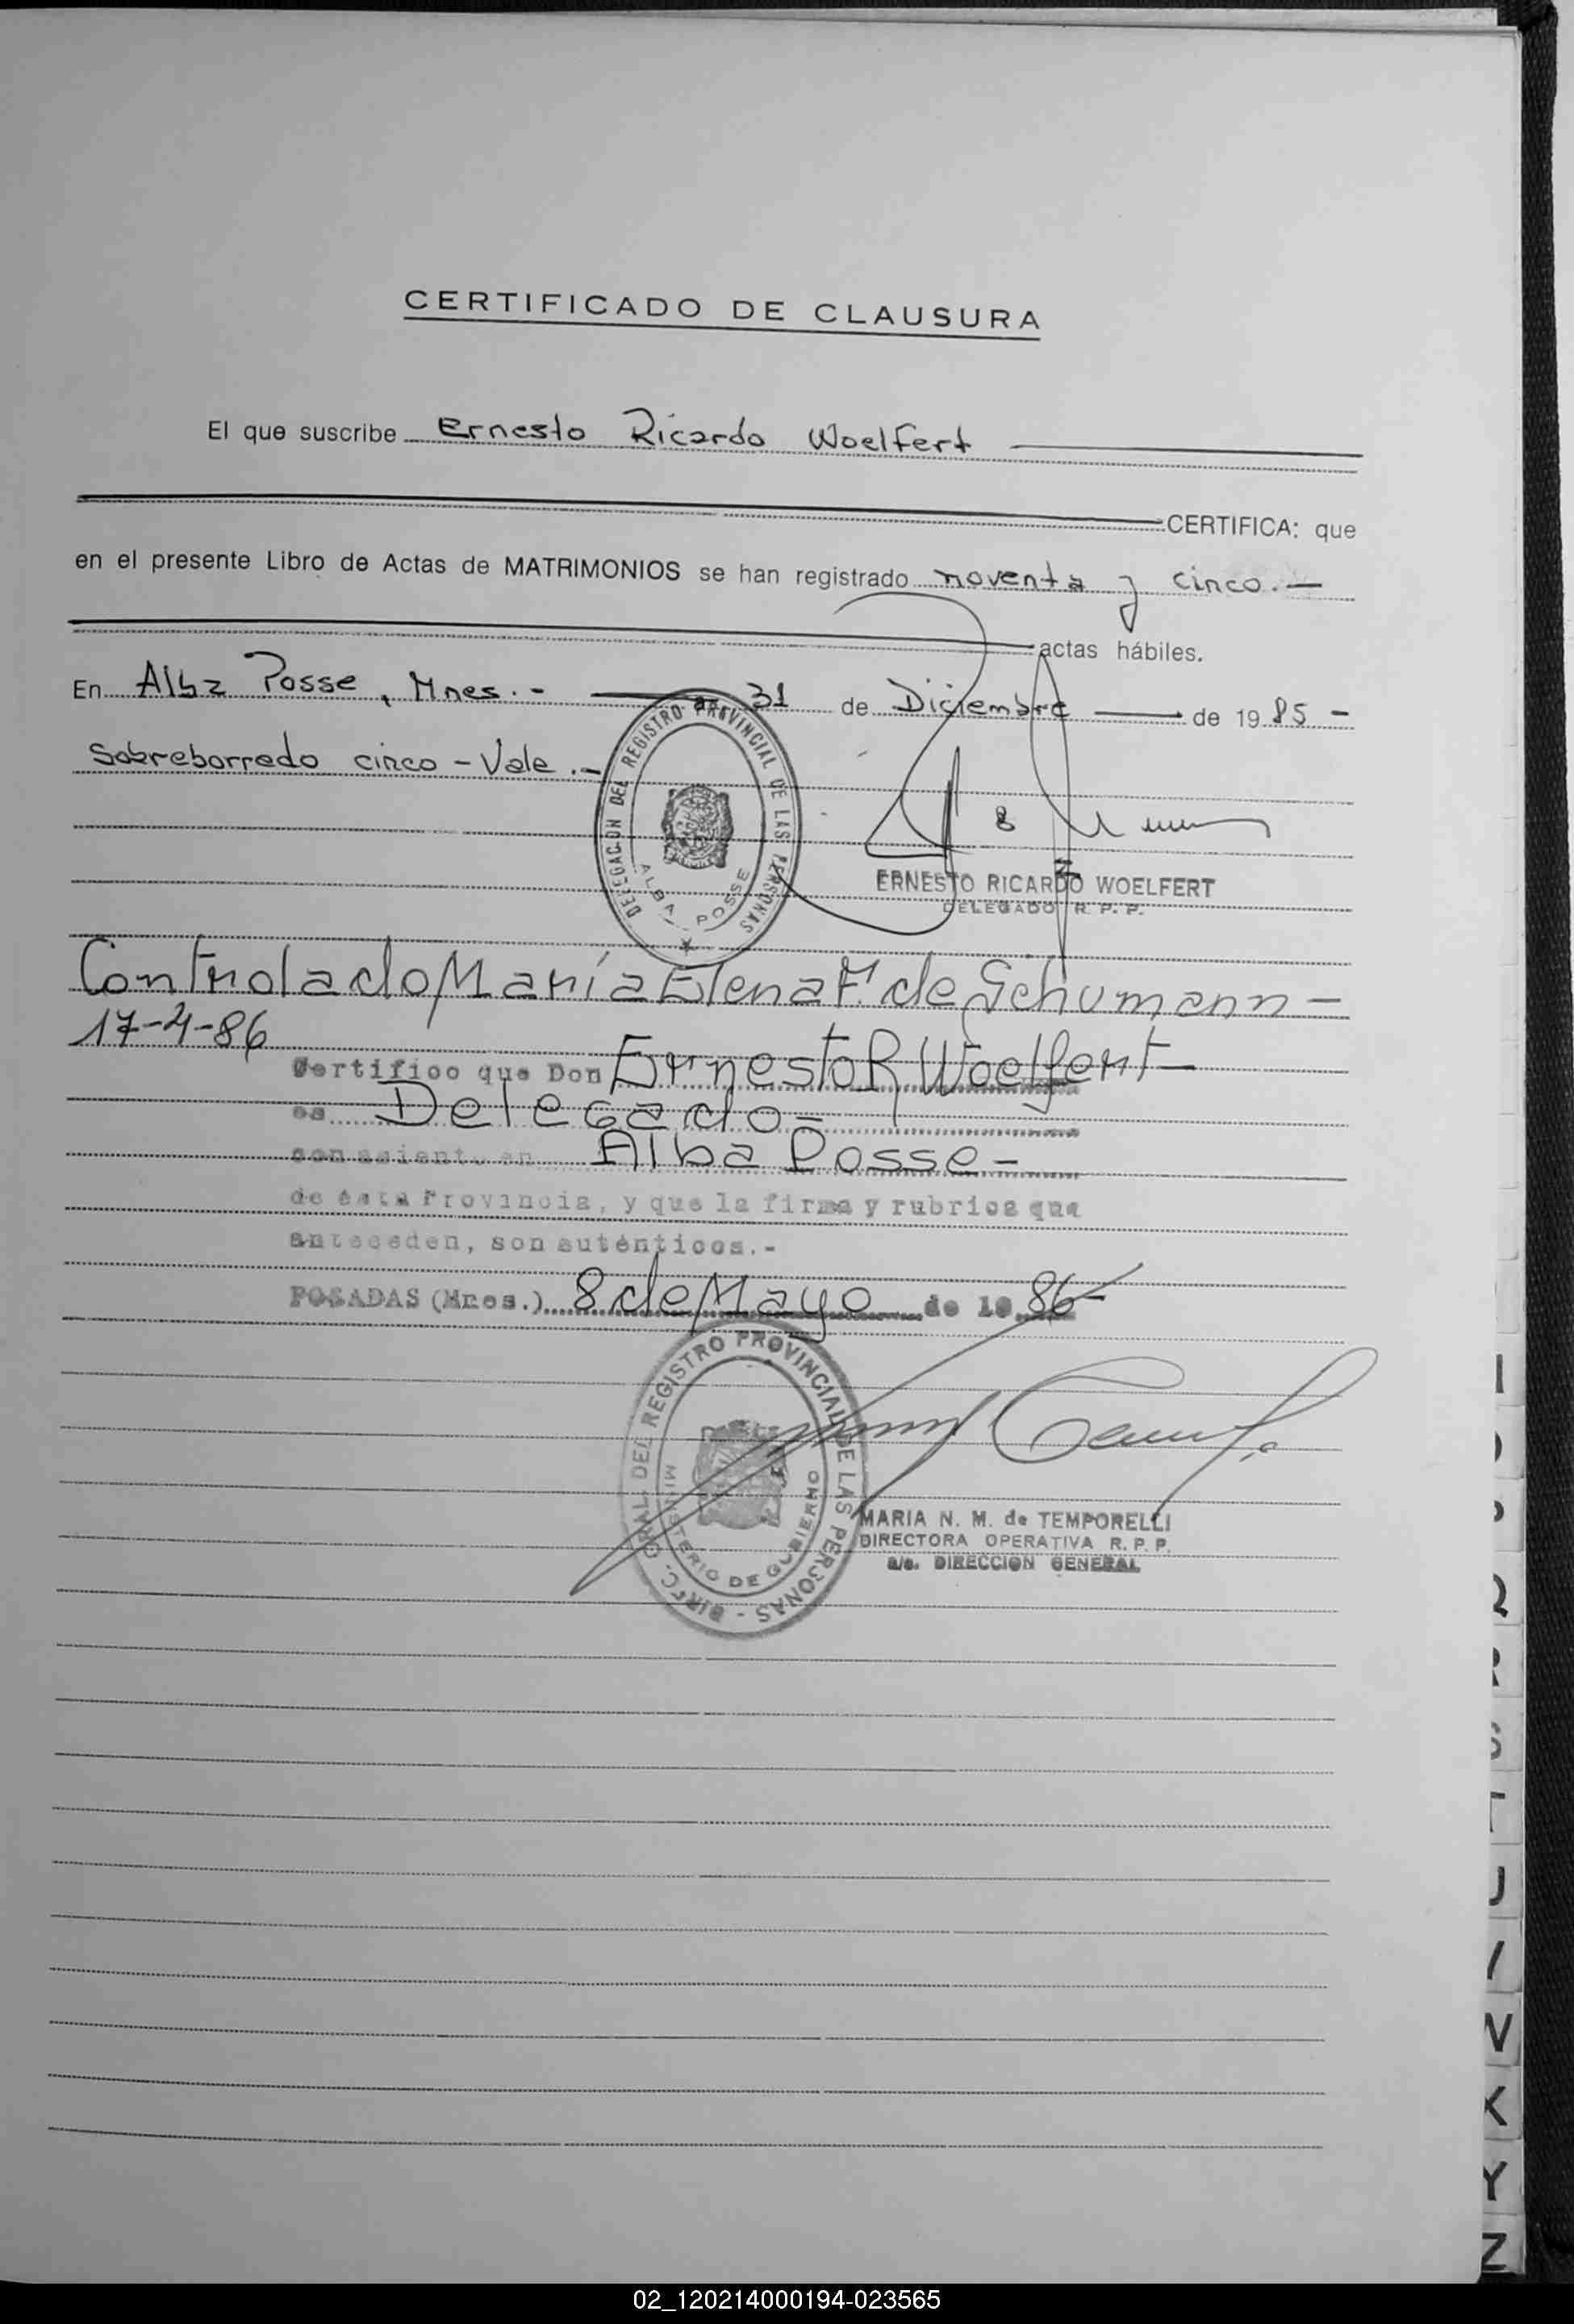 CERTIFICADO DE CLAUSURA
El que suscribe Ernesto Ricardo Woelfert
CERTIFICA: que
en el presente Libro de Actas de MATRIMONIOS se han registrado noventa y cinco.—
actas hábiles.
En Alba Posse, Mnes.- a 31 de Diciembre de 1985 -
Sobreborrado cinco - Vale .-
DELEGACION DEL REGISTRO PROVINCIAL DE LAS PERSONAS
ALBA POSSE
ERNESTO RICARDO WOELFERT
DELEGADO R. P. P.
Controlado María Elena F. de Schumann -
17-4-86
Certifico que Don Ernesto R Woelfert -
es Delegado -
con asiento en Alba Posse -
de ésta Provincia, y que la firma y rubrica que
anteceden, son auténticos.-
POSADAS (Mnes.) 8 de Mayo de 1986-
DIREC. GRAL. DEL REGISTRO PROVINCIAL DE LAS PERSONAS -
MINISTERIO DE GOBIERNO
MARIA N. M. de TEMPORELLI
DIRECTORA OPERATIVA R. P. P.
a/c. DIRECCION GENERAL
Q
R
S
T
U
V
W
X
Y
Z
02_120214000194-023565